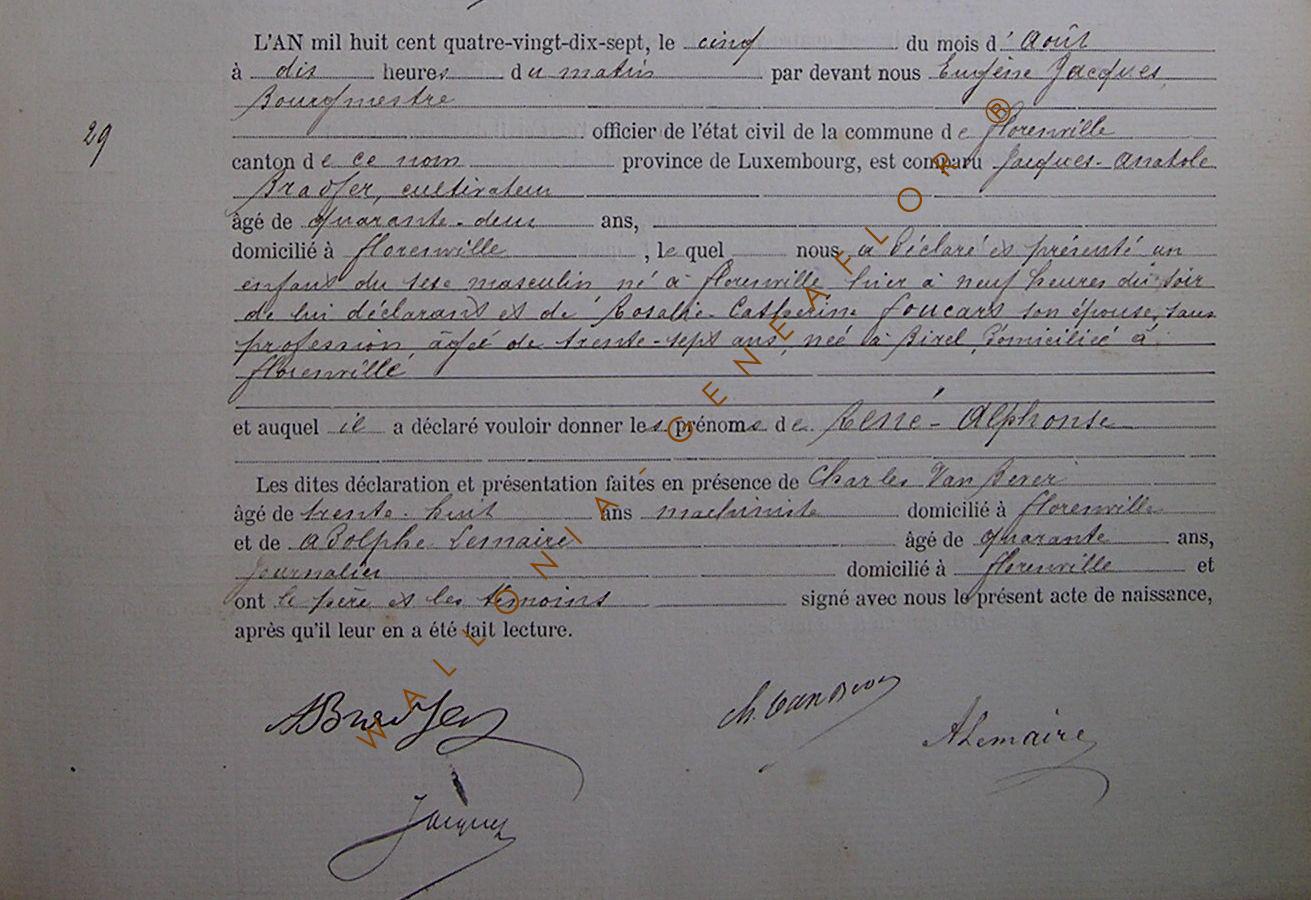 L'AN mil huit cent quatre-vingt-dix-sept, le cinq du mois d' Août
à dix heures du matin par devant nous Eugène Jacques,
Bourgmestre
29
officier de l'état civil de la commune de Florenville
canton de ce nom province de Luxembourg, est comparu Jacques-Anatole
Bradfer, cultivateur
âgé de quarante-deux ans,
domicilié à Florenville, lequel nous a déclaré et présenté un
enfant du sexe masculin né à Florenville hier à neuf heures du soir
de lui déclarant et de Rosalie Catherine Foucart son épouse, sans
profession âgée de trente-sept ans, née à domiciliée à
Florenville
et auquel il a déclaré vouloir donner les prénoms de René-Alphonse
Les dites déclaration et présentation faites en présence de Charles Van
âgé de trente-huit ans machiniste domicilié à Florenville
et de Adolphe Lemaire âgé de quarante ans,
journalier domicilié à Florenville et
ont le père et les témoins signé avec nous le présent acte de naissance,
après qu'il leur en a été fait lecture.
ABradfer
Ch.
ALemaire
Jacques
WALLONIA GENEAFLOR ®